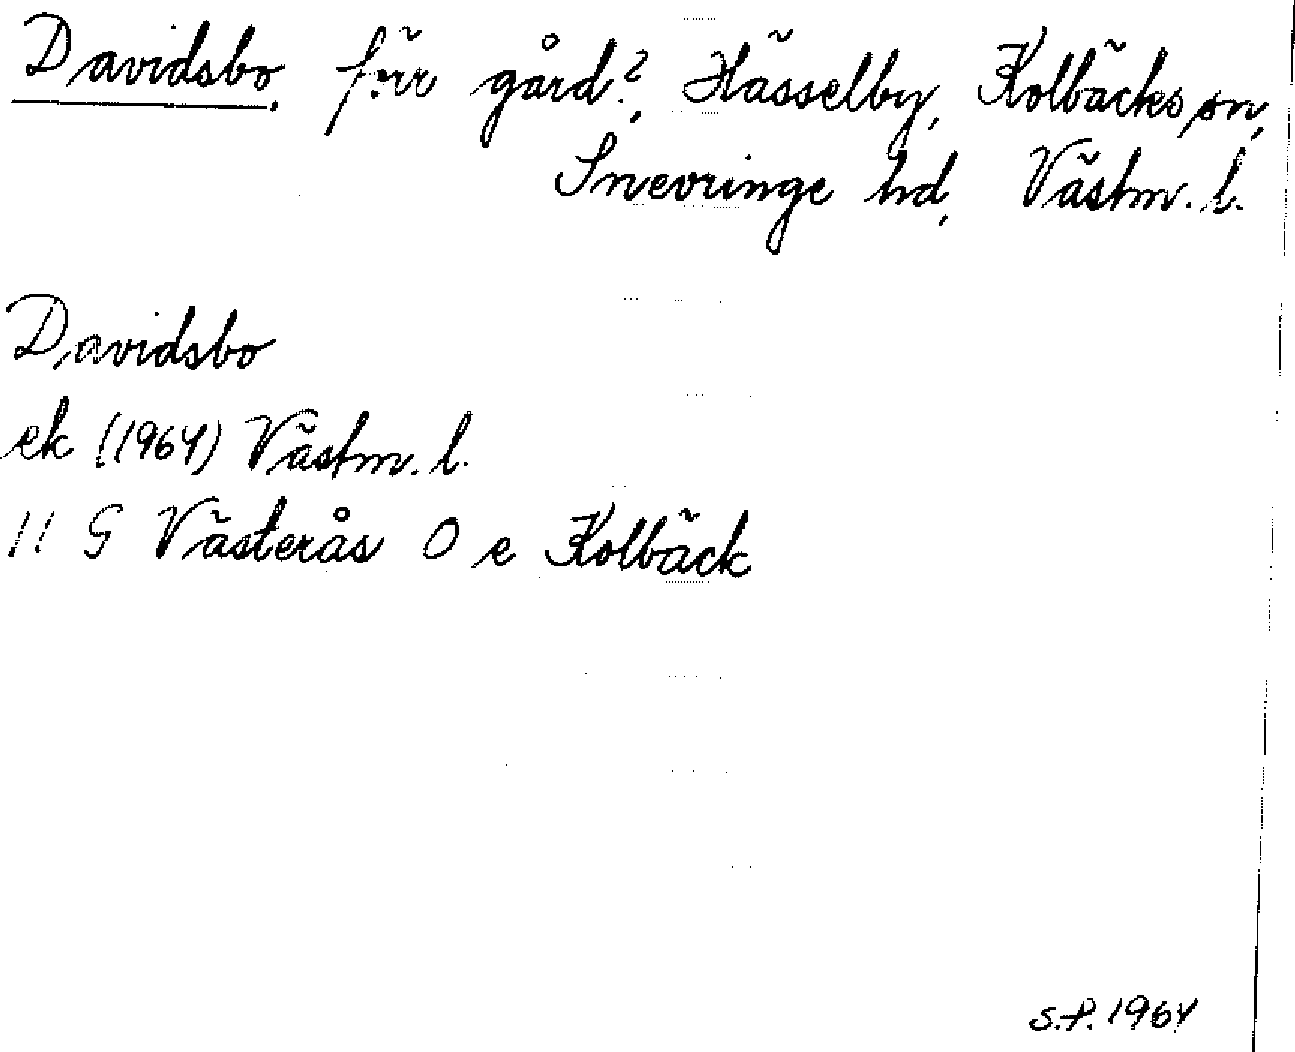 Davidsbo, förr gård?, Hässelby, Kolbäcks sn,
Snevringe hd, Västm. l.
Davidsbo
ek (1964) Västm. l.
11 G Västerås O e Kolbäck
S.P. 1964